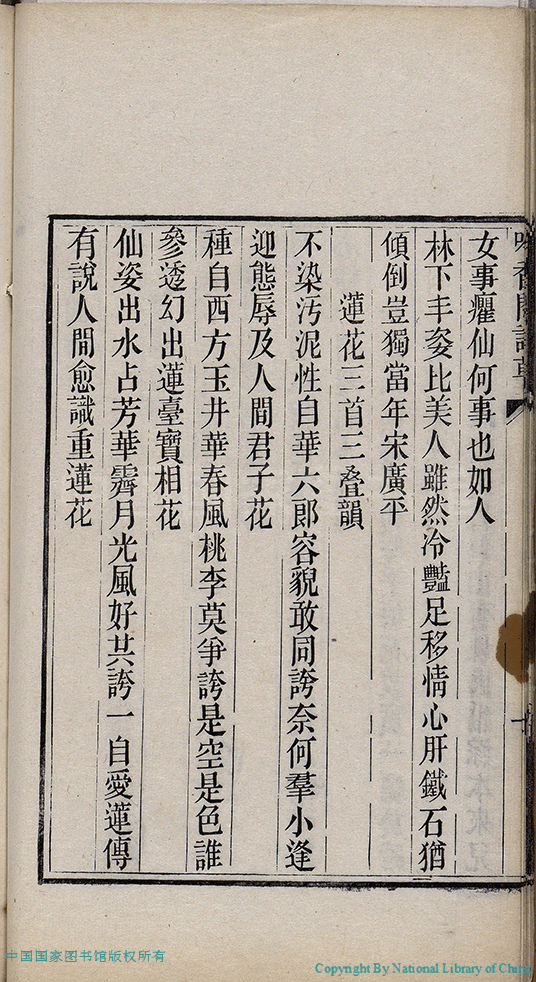 女事癯仙何事也如人
林下丰姿比美人雖然冷豔足移情心肝鐵石猶
傾倒豈獨當年宋廣平
蓮花三首三叠韻
不染汚泥性自華六郎容貌敢同誇奈何羣小逢
迎態辱及人間君子花
種自西方玉井華春風桃李莫爭誇是空是色誰
參透幻出蓮臺寶相花
仙姿出水占芳華霽月光風好共誇一自愛蓮傳
有說人間愈識重蓮花
中国国家图书馆版权所有
Copyright By National Library of China